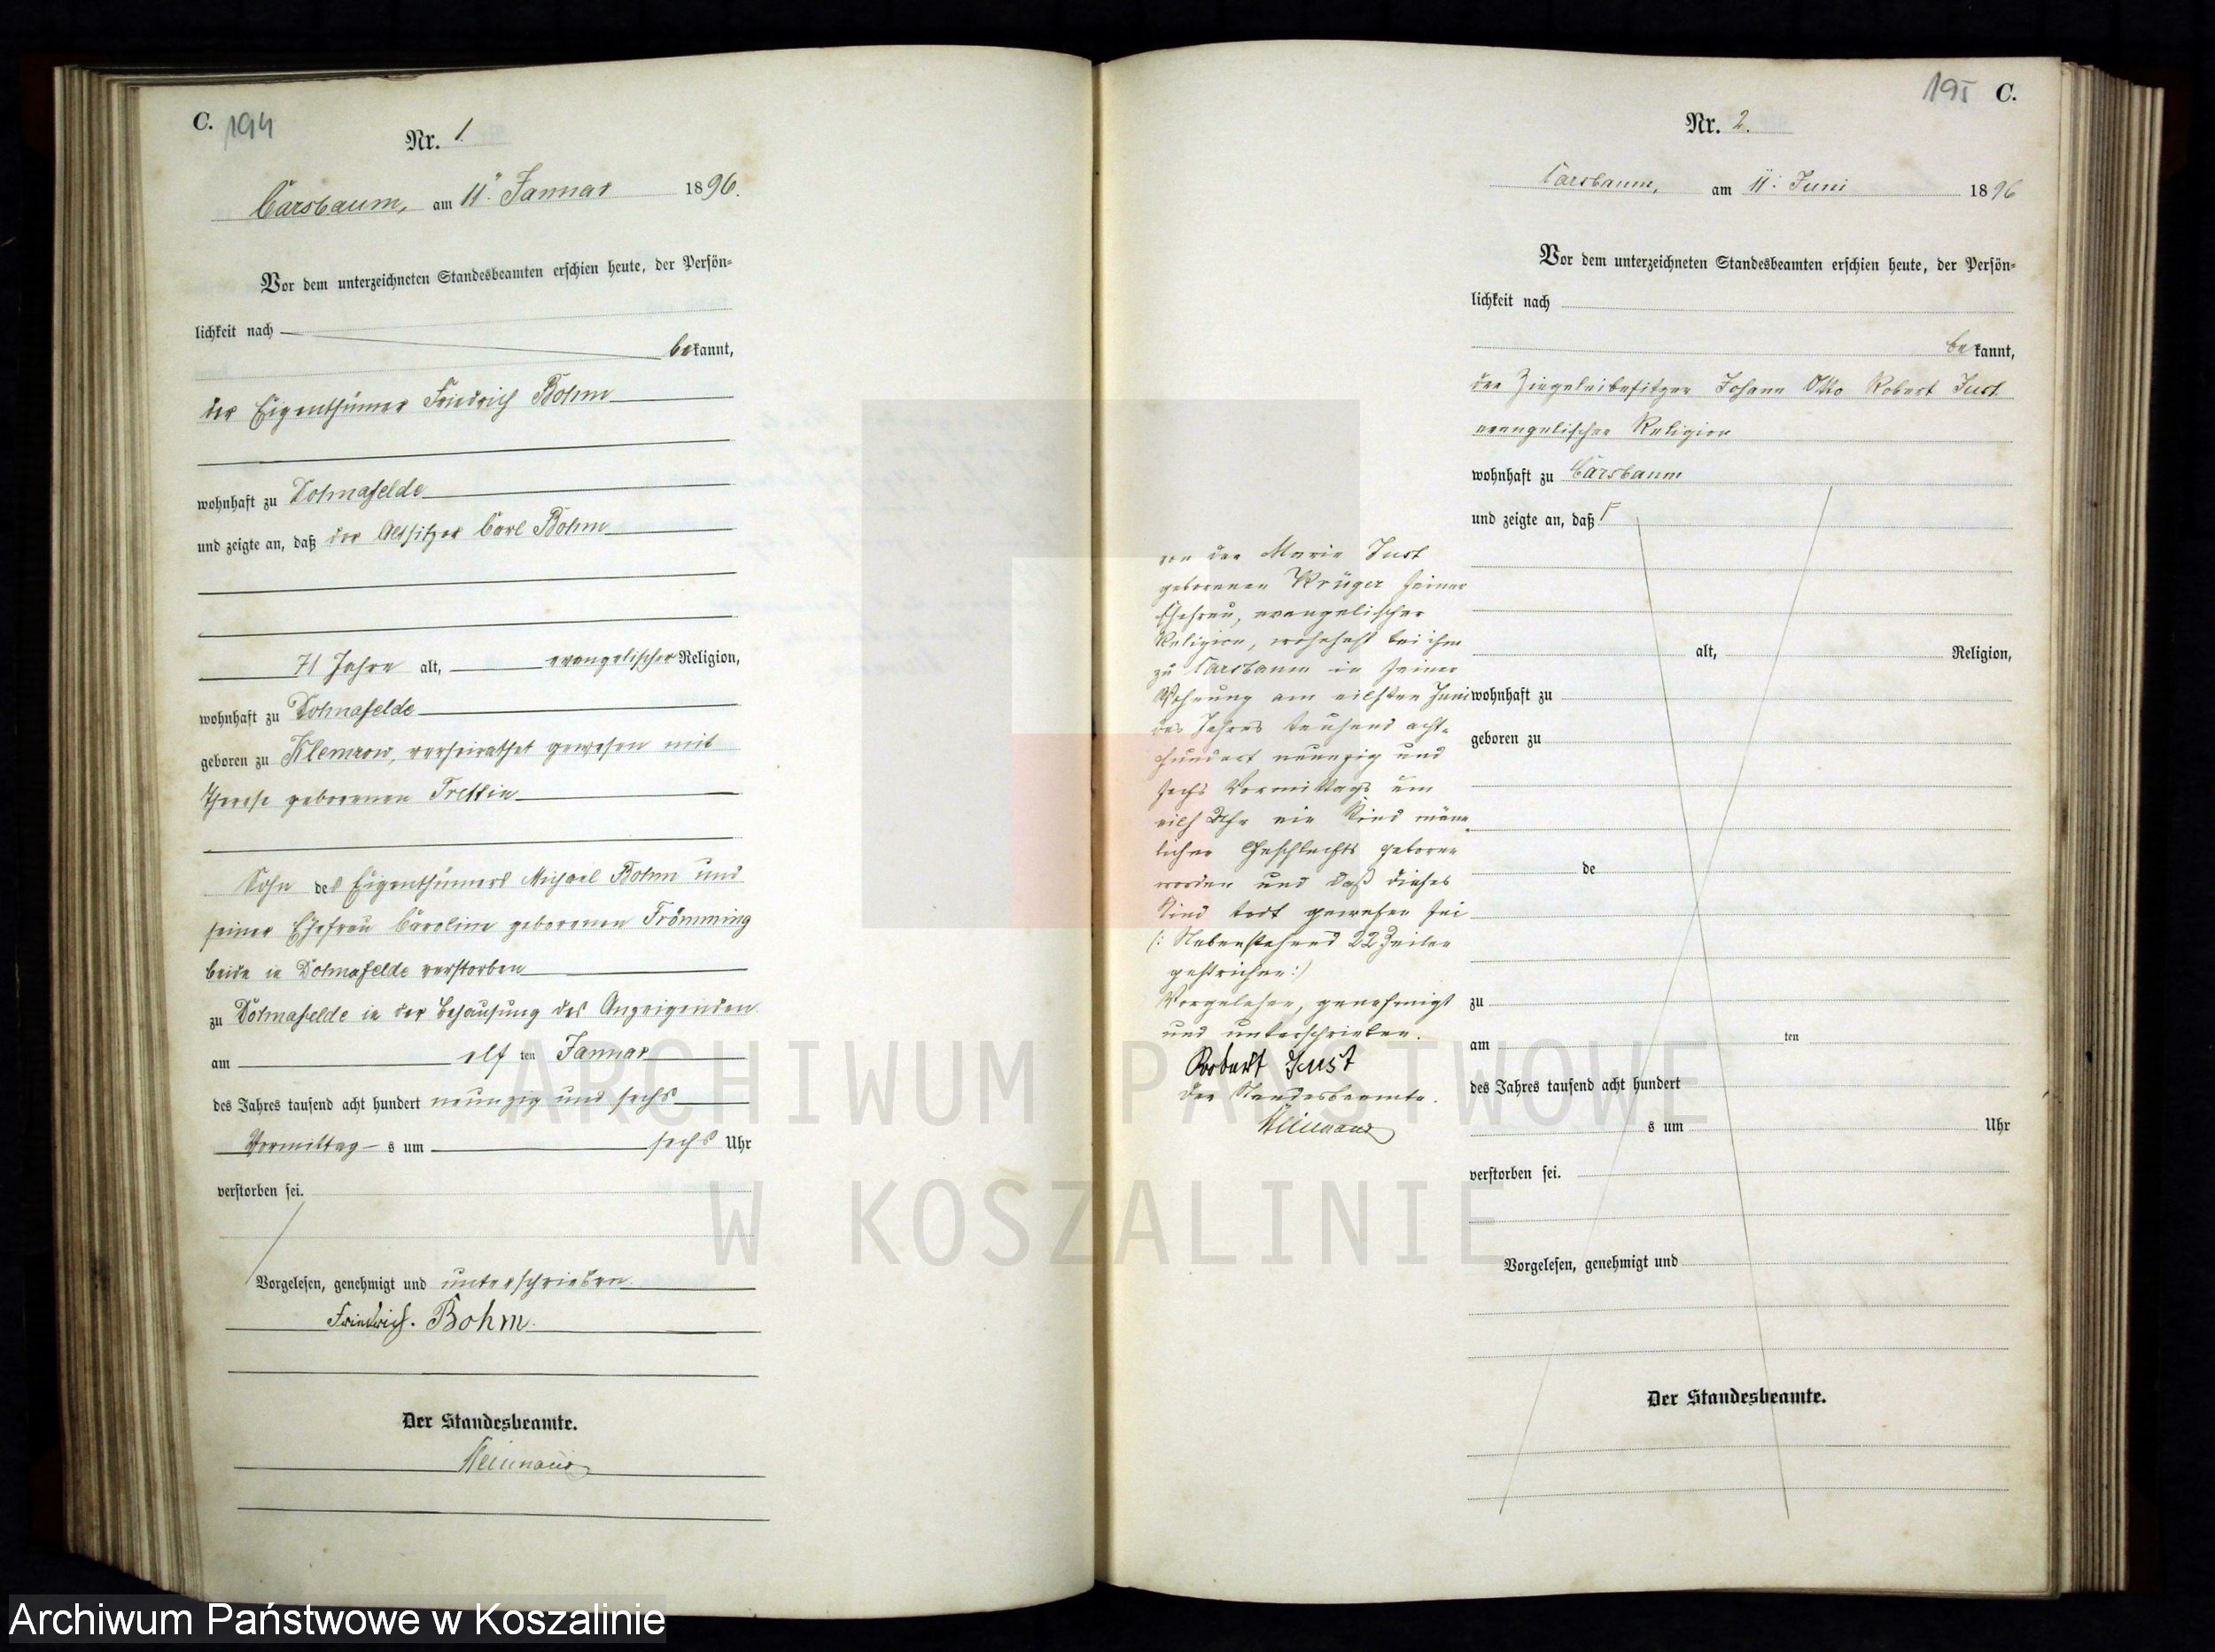 C. 194
Nr. 1.
Carsbaum, am 11. Januar 1896.
Vor dem unterzeichneten Standesbeamten erschien heute, der Persön-
lichkeit nach
bekannt,
der Eigenthümer Friedrich Bohm
wohnhaft zu Dolmafelde
und zeigte an, daß der Altsitzer Carl Bohm
71 Jahre alt, evangelischer Religion,
wohnhaft zu Dolmafelde
geboren zu Klemzow, verheirathet gewesen mit
Therese geborenen Trettin
Sohn des Eigenthümers Michael Bohm und
seiner Ehefrau Caroline geborenen Frömming
beide in Dolmafelde verstorben
zu Dolmafelde in der Behausung des Anzeigenden
am elf ten Januar
des Jahres tausend acht hundert neunzig und sechs
Vormittag s um sechs Uhr
verstorben sei.
Vorgelesen, genehmigt und unterschrieben.
Friedrich. Bohm.
Der Standesbeamte.
195 C.
Nr. 2.
Carsbaum, am 11. Juni 1896
Vor dem unterzeichneten Standesbeamten erschien heute, der Persön-
lichkeit nach
bekannt,
der Ziegeleibesitzer Johann Otto Robert Just
evangelischer Religion
wohnhaft zu Carsbaum
und zeigte an, daß Γ
alt, Religion,
wohnhaft zu
geboren zu
de
zu
am ten
des Jahres tausend acht hundert
s um Uhr
verstorben sei.
Vorgelesen, genehmigt und
Der Standesbeamte.
von der Marie Just
geborenen Krüger seiner
Ehefrau, evangelischer
Religion, wohnhaft bei ihm
zu Carsbaum in seiner
Wohnung am eilften Juni
des Jahres tausend acht-
hundert neunzig und
sechs Vormittags um
eilf Uhr ein Kind männ
lichen Geschlechts geboren
worden und daß dieses
Kind todt gewesen sei
(: Nebenstehend 22 Zeilen
gestrichen :)
Vorgelesen, genehmigt
und unterschrieben.
Robert Just
Der Standesbeamte.
ARCHIWUM PAŃSTWOWE
W KOSZALINIE
Archiwum Państwowe w Koszalinie